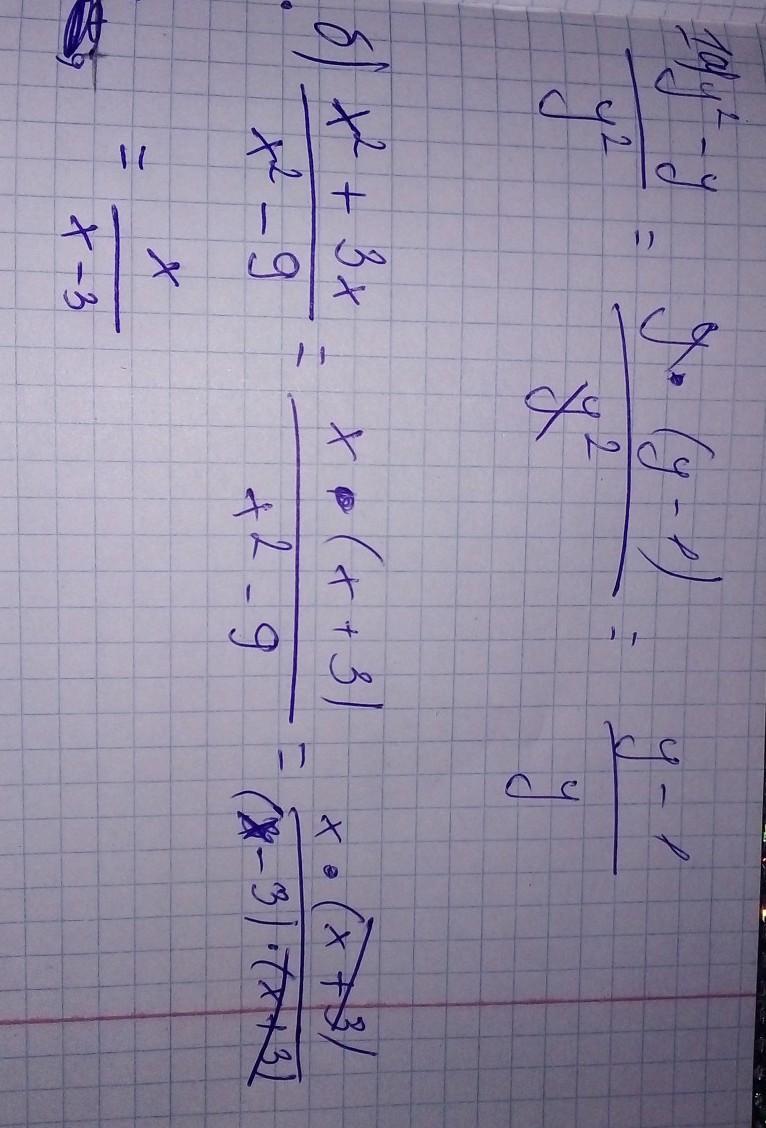 1a) (y² - y)/y² = (y · (y - 1))/y² = (y - 1)/y
б) (x² + 3x)/(x² - 9) = (x · (x + 3))/(x² - 9) = (x · (x + 3))/((x - 3) · (x + 3))
= x/(x - 3)